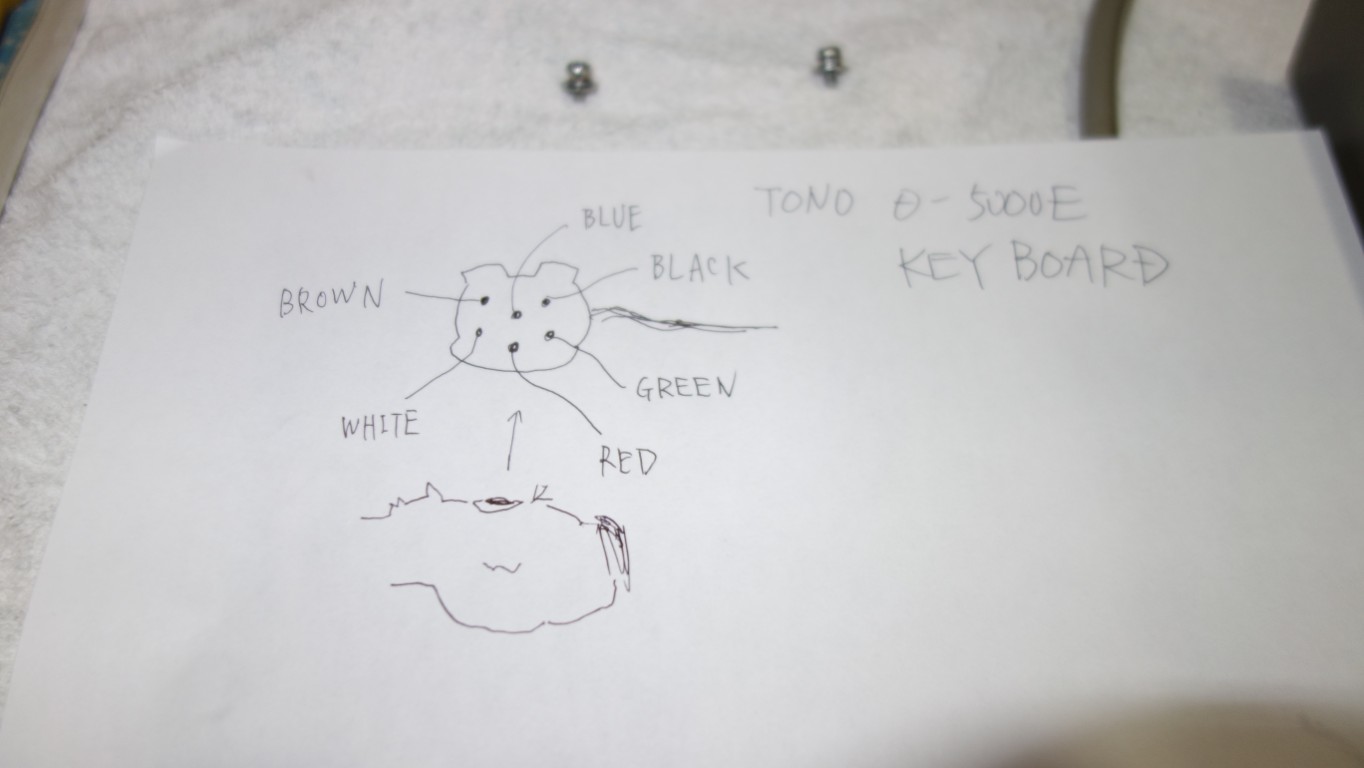 TONO θ-5000E
KEY BOARD
BLUE
BLACK
BROWN
GREEN
WHITE
RED